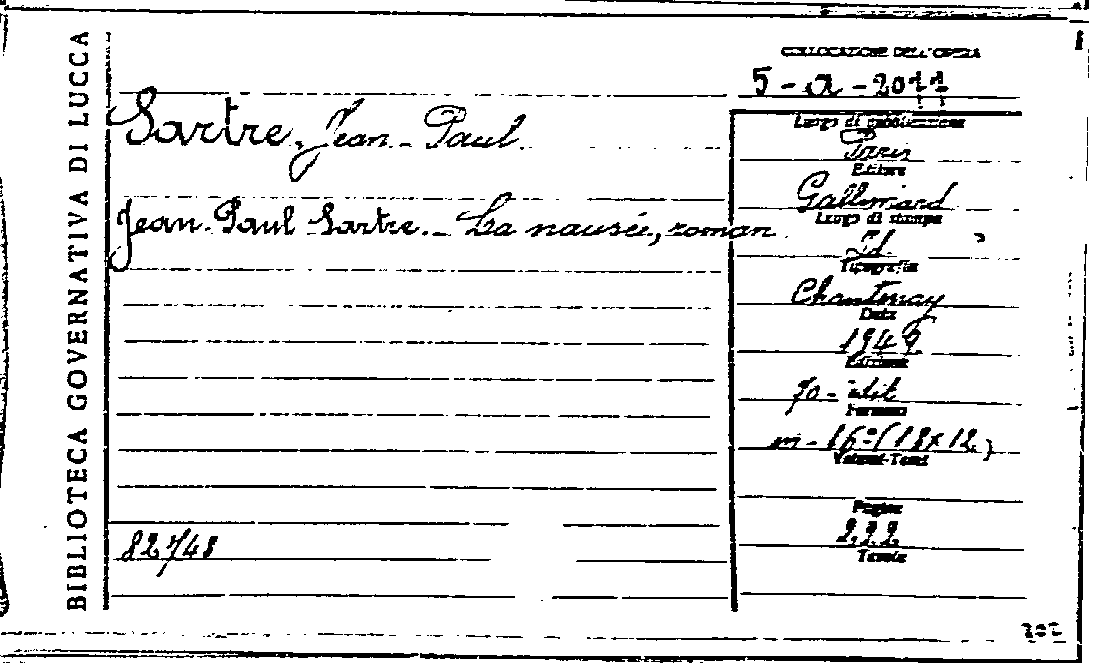 BIBLIOTECA GOVERNATIVA DI LUCCA
COLLOCAZIONE DELL'OPERA
5 - a - 2011
Sartre, Jean - Paul.
Jean-Paul Sartre. - La nausée, roman
Luogo di pubblicazione
Paris
Editore
Gallimard
Luogo di stampa
Id.
Tipografia
Chantenay
Data
1949
Edizione
70 - édit
Formato
in - 16º (18x12)
Volumi-Tomi
Pagine
222
Tavole
82748